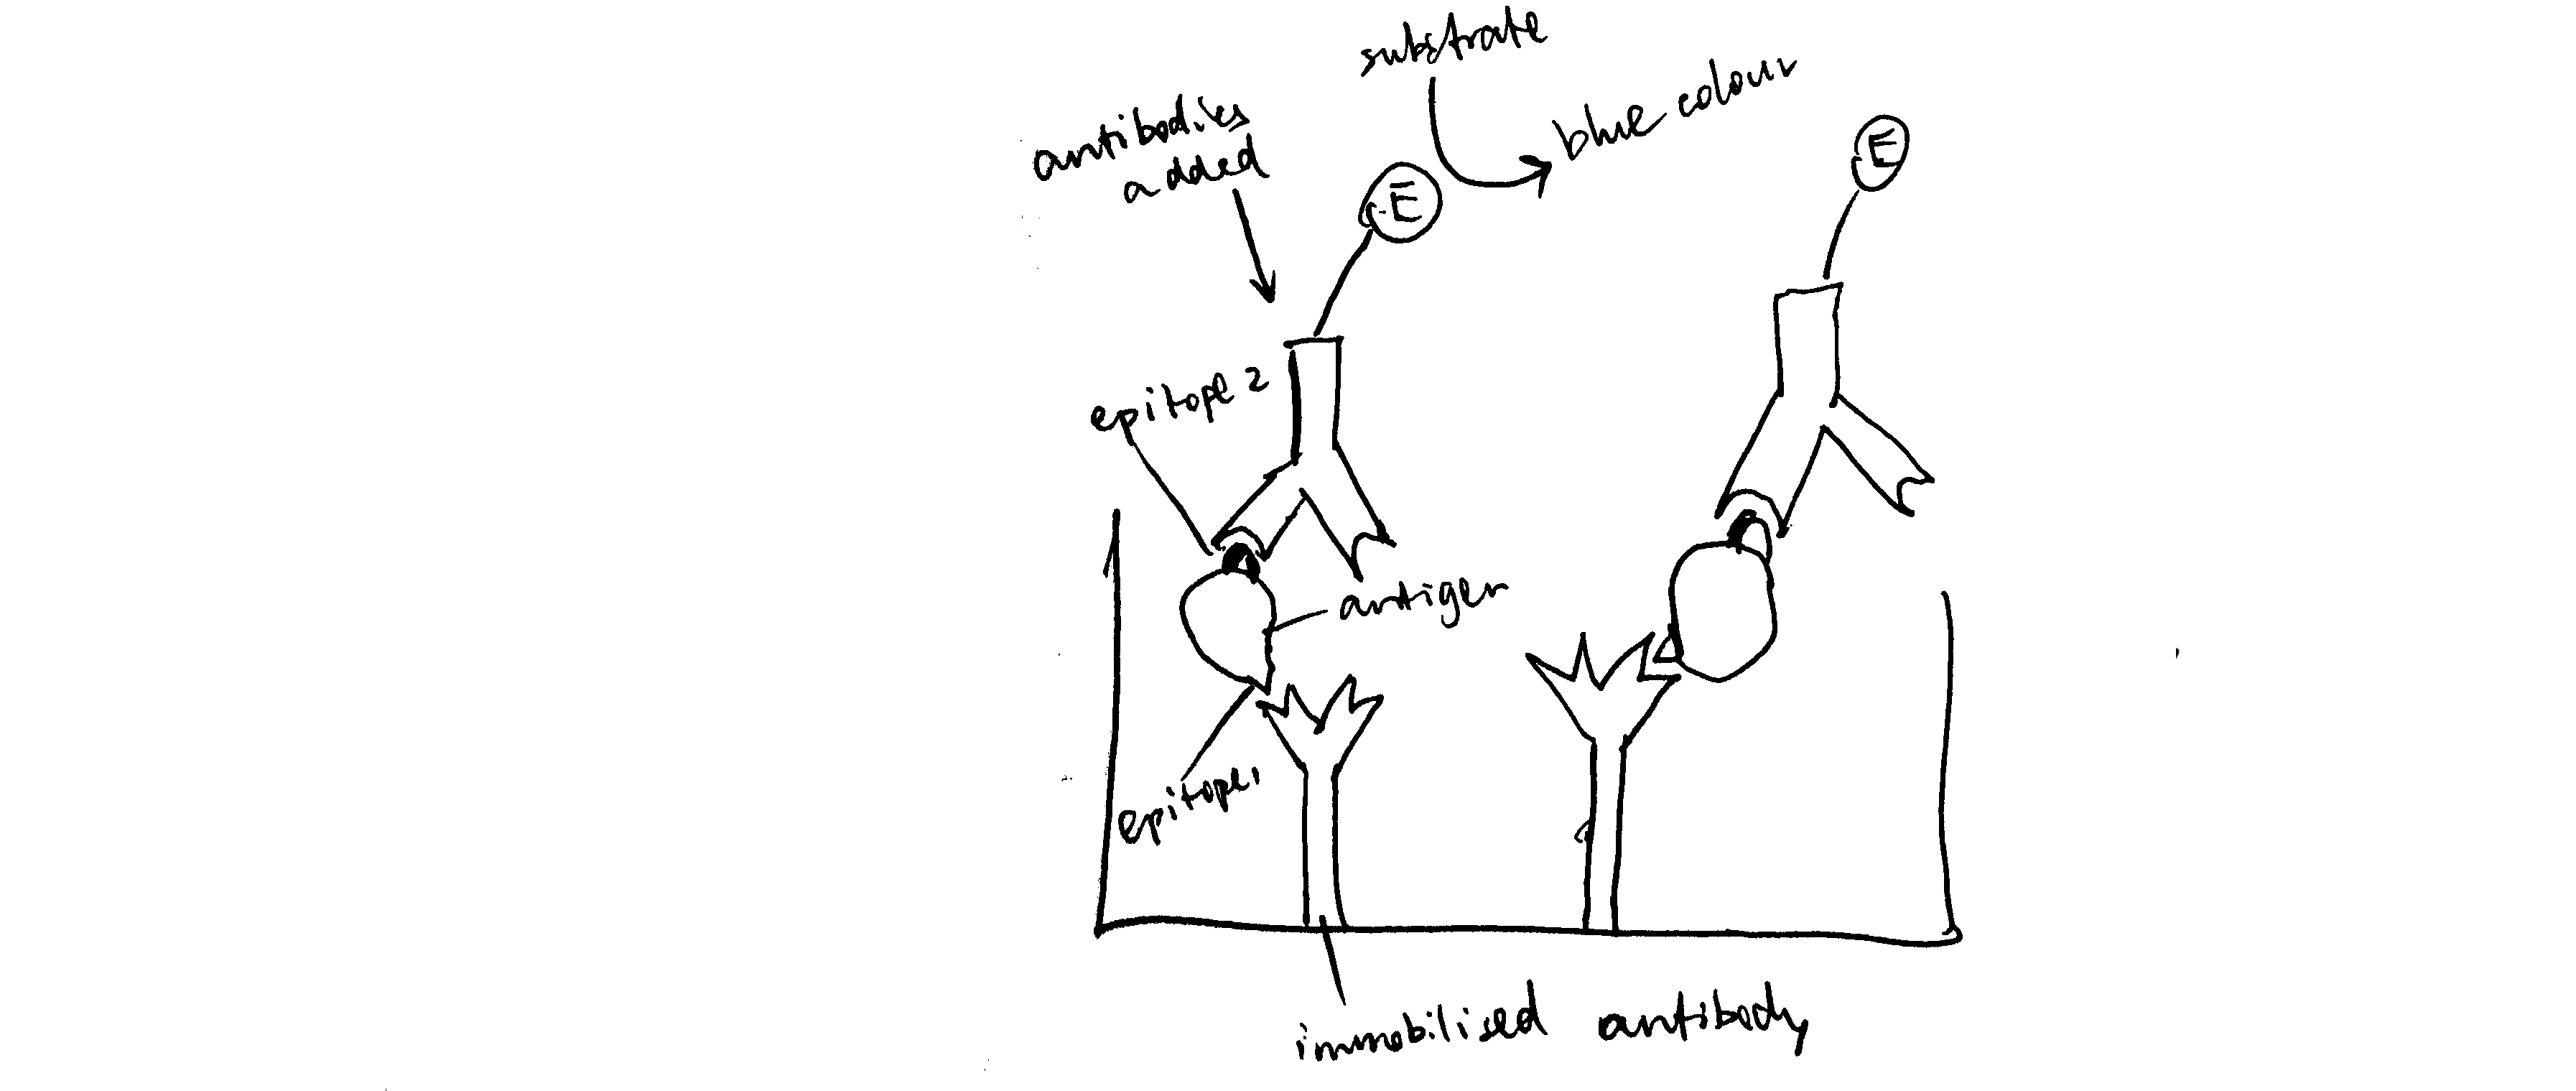 substrate
blue colour
antibodies
added
E
E
epitope 2
antigen
epitope 1
immobilised antibody